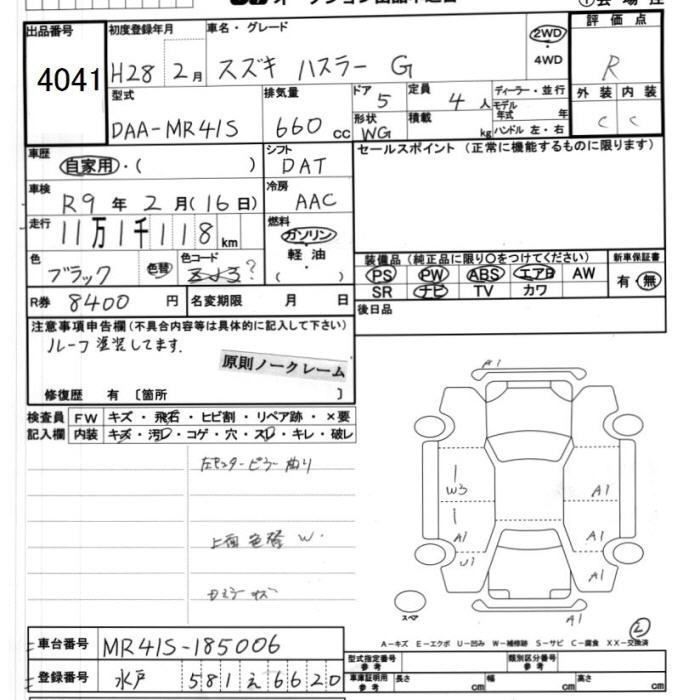 出品番号
4041
初度登録年月
H28 2月
車名・グレード
スズキ ハスラー G
2WD
4WD
評価点
R
外装 内装
C C
型式
DAA-MR41S
排気量
660 cc
ドア
5
定員
4人
形状
WG
積載
kg
ディーラー・並行
モデル年式 年
ハンドル 左・右
車歴
自家用・( )
シフト
DAT
セールスポイント (正常に機能するものに限ります)
車検
R9年2月(16日)
冷房
AAC
走行
11万1千118km
燃料
ガソリン
軽油
( )
色
ブラック
色替
色コード
装備品 (純正品に限り○をつけてください)
PS PW ABS エアB AW
SR ナビ TV カワ
新車保証書
有・無
R券 8400円
名変期限 月 日
後日品
注意事項申告欄 (不具合内容等は具体的に記入して下さい)
ルーフ塗装してます.
原則ノークレーム
修復歴 有 〔箇所 〕
検査員記入欄
FW キズ・飛石・ヒビ割・リペア跡・×要
内装 キズ・汚レ・コゲ・穴・スレ・キレ・破レ
左センターピラー曲り
上面色替 W.
A1
W3
A1
A1
A1
U1
A1
A1
スペア
2
A-キズ E-エクボ U-凹み W-補修跡 S-サビ C-腐食 XX-交換済
車台番号 MR41S-185006
登録番号 水戸 581 え 6620
型式指定番号 参考
類別区分番号 参考
車庫証明用 参考
長さ cm
幅 cm
高さ cm